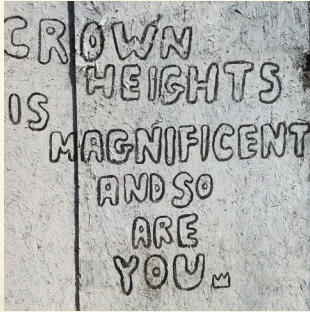 CROWN
HEIGHTS
IS
MAGNIFICENT
AND SO
ARE
YOU